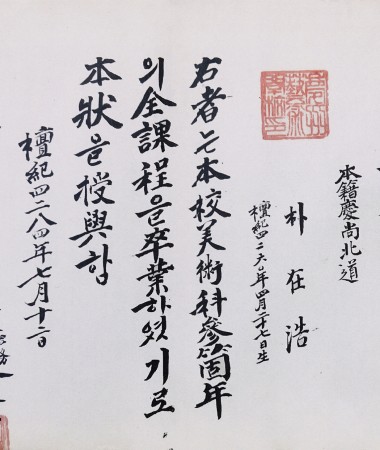 本籍慶尚北道
朴在浩
檀紀四二六〇年四月二十七日生
右者는本校美術科參箇年
의全課程을卒業하였기로
本狀을授與함
檀紀四二八四年七月十二日